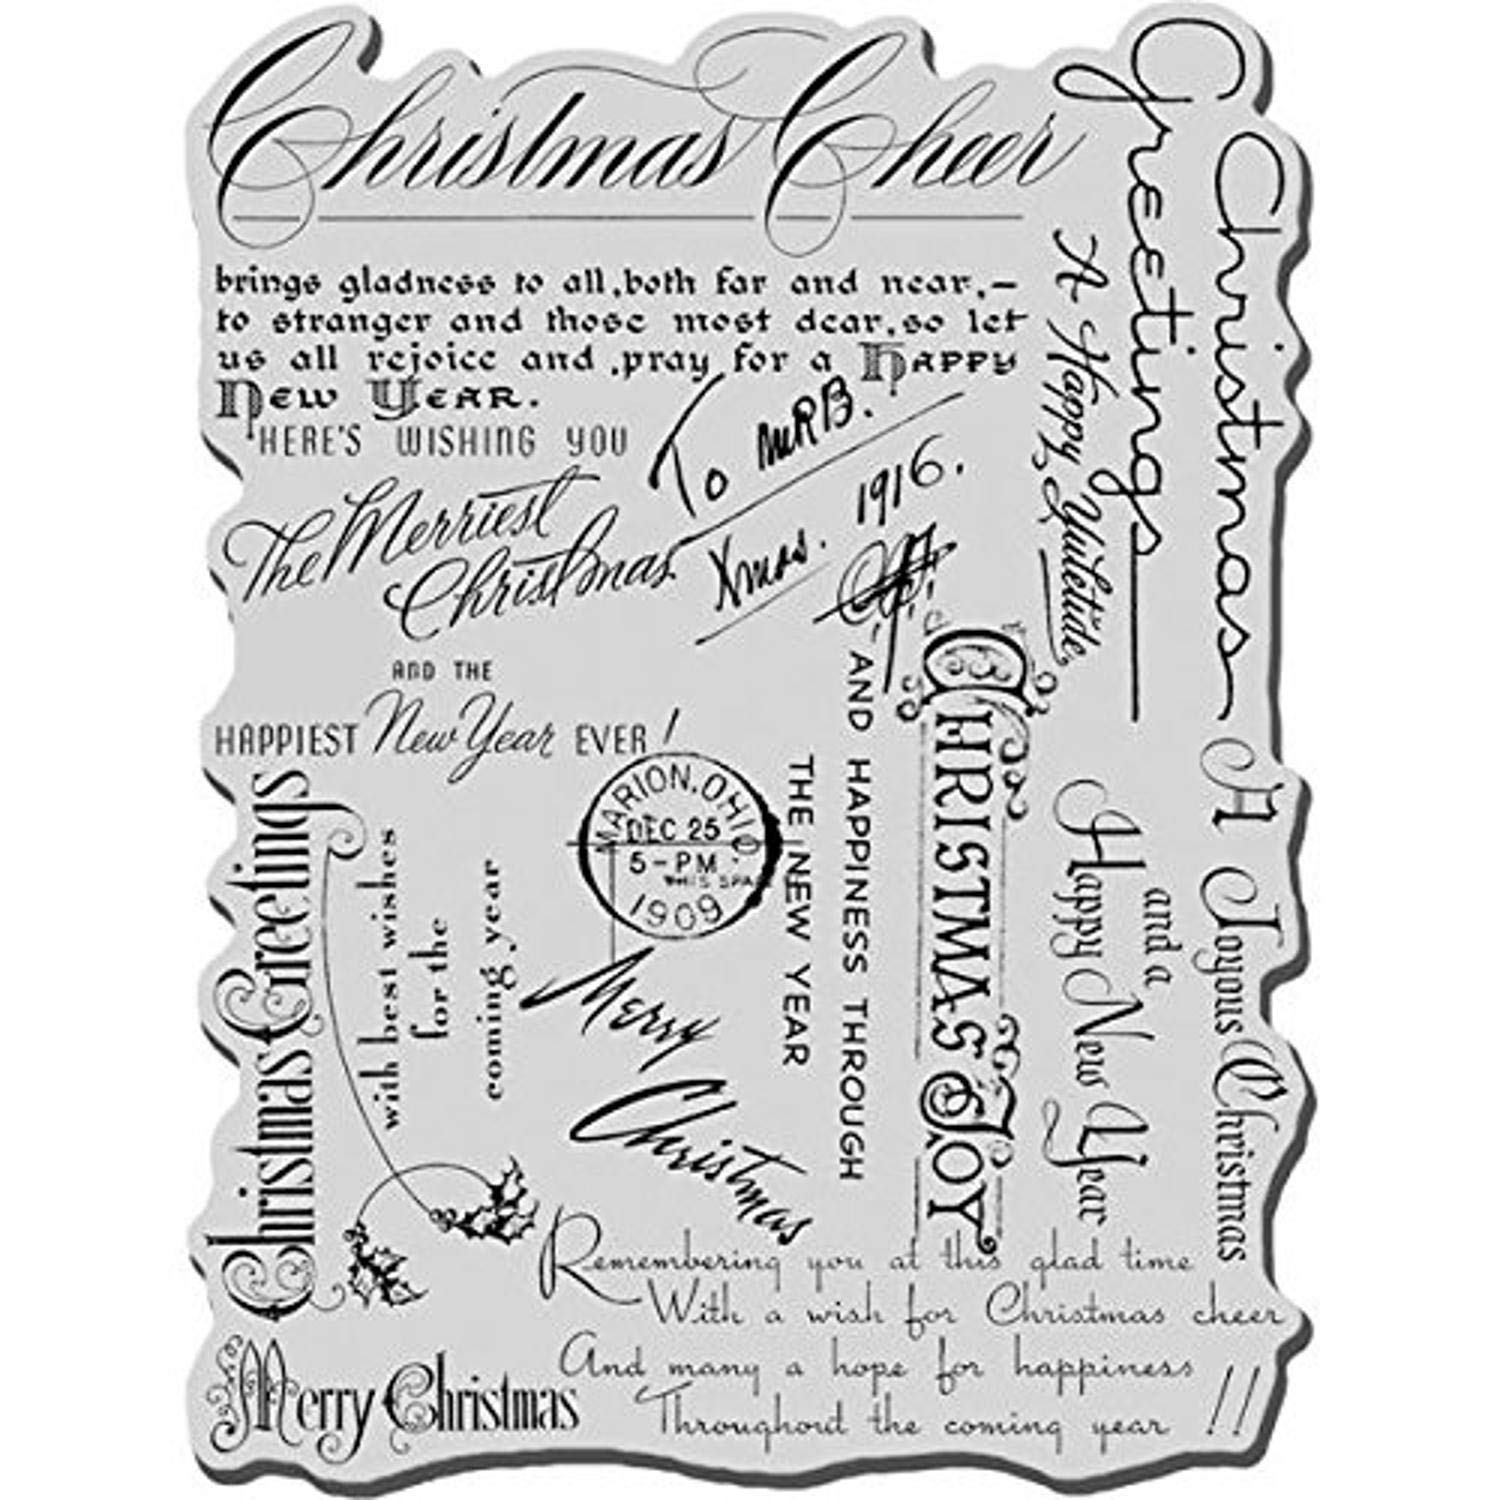 Christmas Cheer
brings gladness to all, both far and near, –
to stranger and those most dear, so let
us all rejoice and, pray for a Happy
New Year.
HERE'S WISHING YOU
The Merriest
Christmas
AND THE
HAPPIEST New Year EVER!
To MRB.
Xmas. 1916.
Christmas
Greetings
A Happy Yuletide
A Joyous Christmas
and a
Happy New Year
CHRISTMAS JOY
AND HAPPINESS THROUGH
THE NEW YEAR
MARION, OHIO.
DEC 25
5-PM
THIS SPA
1909
Merry
Christmas
Christmas Greetings
with best wishes
for the
coming year
Merry Christmas
Remembering you at this glad time
With a wish for Christmas cheer
And many a hope for happiness
Throughout the coming year !!